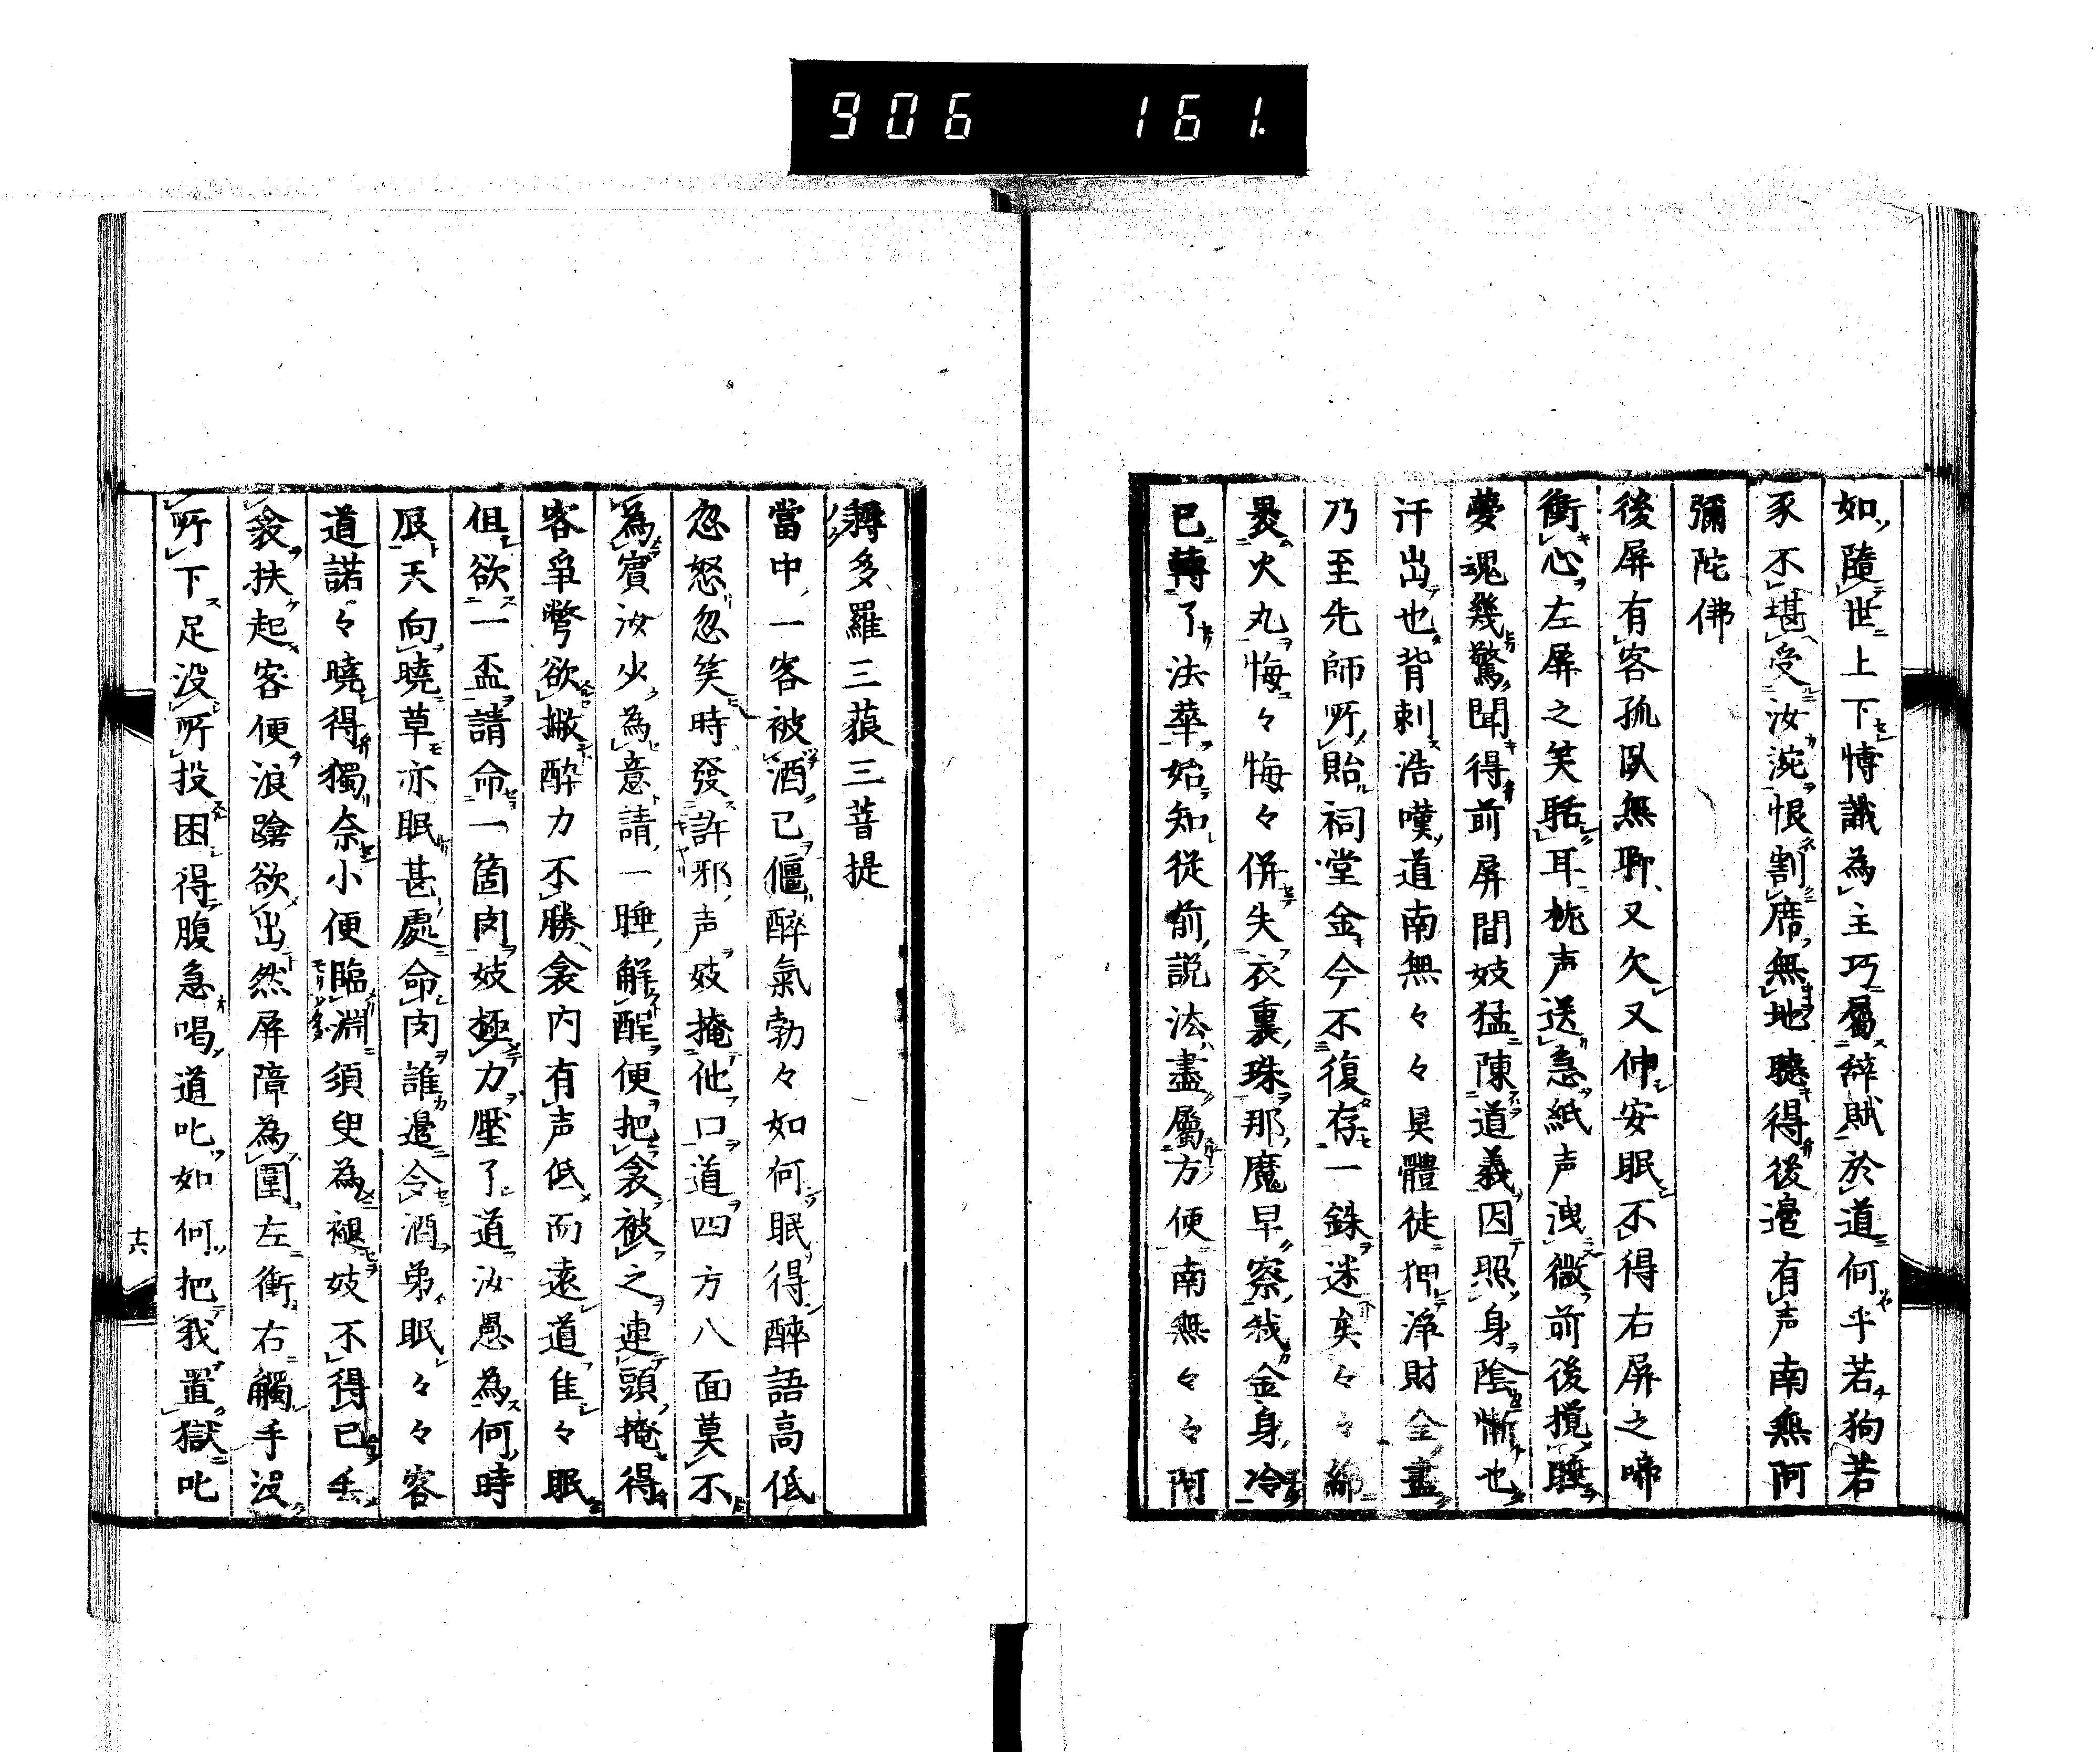 906 161.
如隨世上下博識為主巧屬辭賦於道何乎若狗若
豕不堪受汝涴恨割席無地聽得後邉有声南無阿
彌陀佛
後屏有客孤臥無聊又欠又伸安眠不得右屏之啼
衝心左屏之笑聒耳枕声送急紙声洩微前後攪睡
夢魂幾驚聞得前屏間妓猛陳道義因照身陰慚也
汗出也背刺浩嘆道南無々々具體徒狎淨財全盡
乃至先師所貽祠堂金今不復存一銖迷矣々々綿
褁火丸悔々悔々併失衣裏珠那魔早察我金身冷
已轉了法華始知從前説法盡屬方便南無々々阿
耨多羅三藐三菩提
當中一客被酒已傴醉氣勃々如何眠得醉語高低
忽怒忽笑時發許邪声妓掩他口道四方八面莫不
為賓汝少為意請一睡解醒便把衾被之連頭掩得
客爭彆欲撇醉力不勝衾内有声低而遠道隹々眠
但欲一盃請命一箇肉妓極力壓了道汝愚為何時
辰天向曉草亦眠甚處命肉誰邉令酒弟眠々々客
道諾々曉得獨奈小便臨淵須臾為褪妓不得已丢
衾扶起客便浪蹌欲出然屏障為圍左衝右觸手没
所下足没所投困得腹急喝道叱如何把我置獄叱
十六